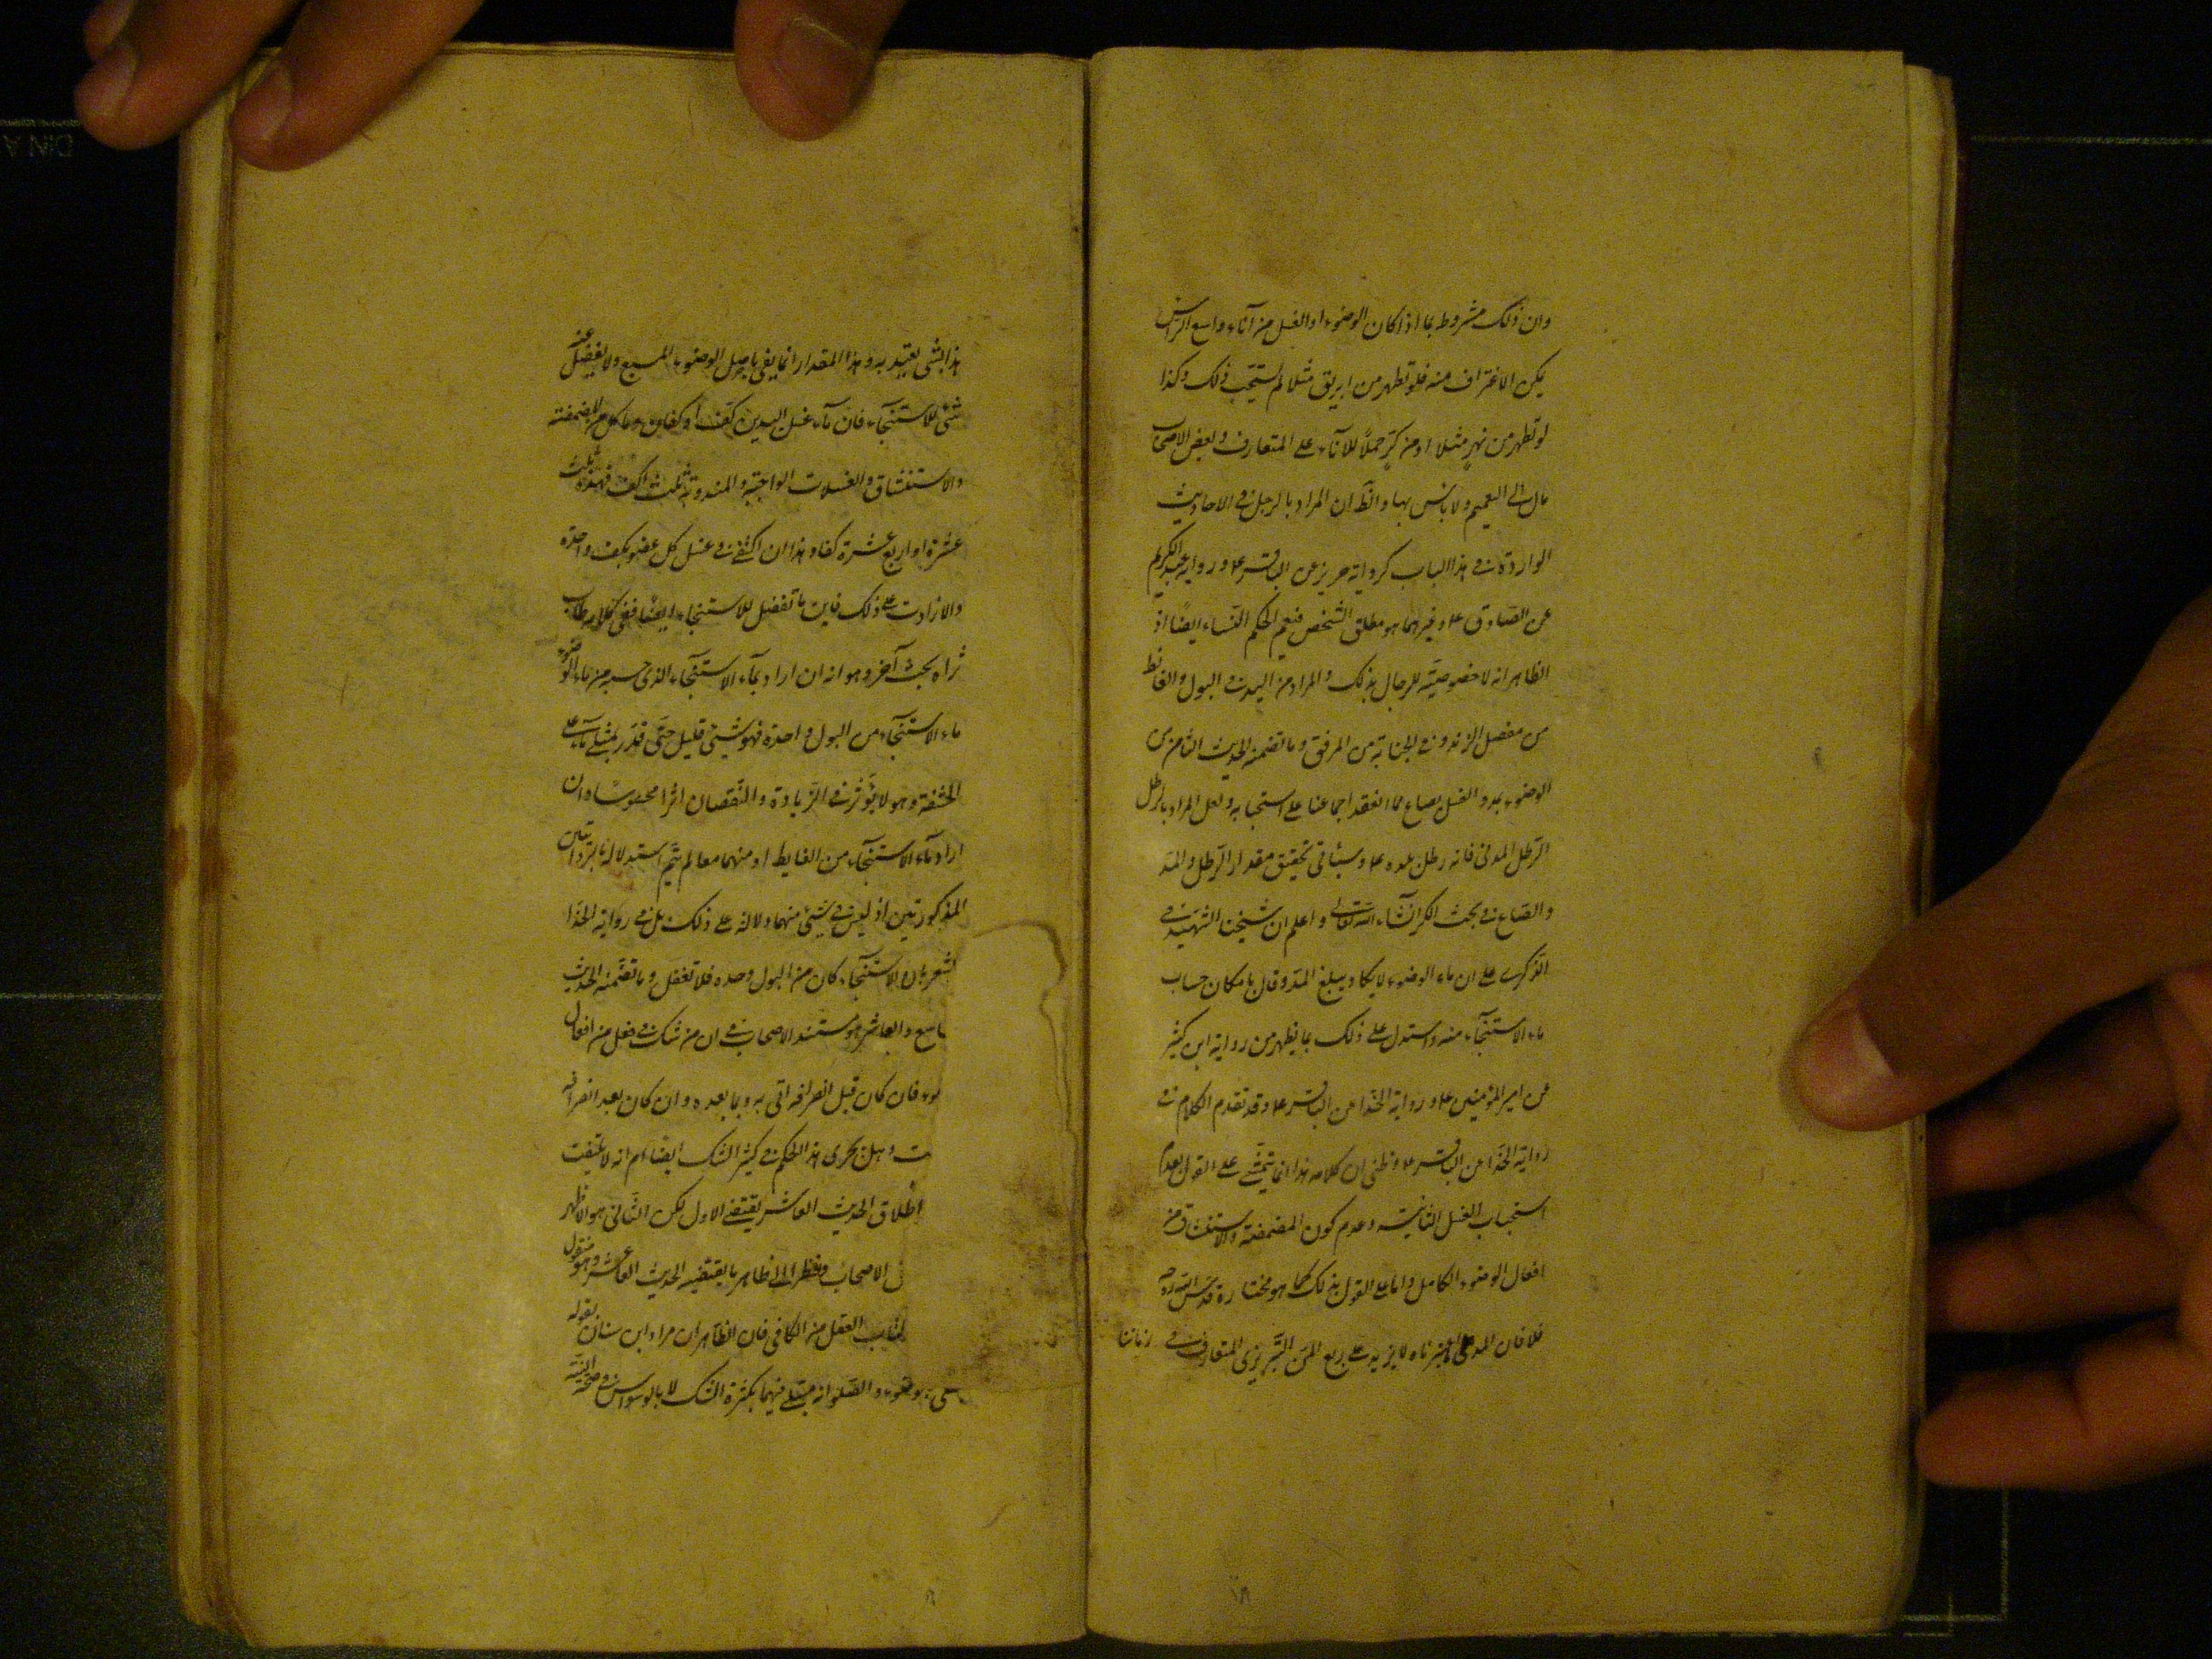 وان ذلك مشروط بما اذا كان الوضوء او الغسل من آناء واسع الراس
يمكن الاغتراف منه فلو تطهر من ابريق مثلا لم يستحب ذلك وكذا
لو تطهر من نهر مثلا او من كر حملا للاناء على المتعارف وبعض الاصحاب
مال الى التعميم ولا باس بها والظ ان المراد بالرجل في الاحاديث
الواردة في هذا الباب كرواية حريز عن الباقر ع و رواية عبد الكريم
عن الصادق ع وغيرهما هو مطلق الشخص فيعم الحكم النساء ايضا اذ
الظاهر انه لا خصوصية للرجال بذلك والمراد من اليد في البول والغائط
من مفصل الزند و في الجنابة من المرفق وما تضمنه الحديث الثامن من
الوضوء بمد والغسل بصاع مما انعقد اجماعنا على استحبابه ولعل المراد بالرطل
الرطل المدنى فانه رطل بلده ع وسياتي تحقيق مقدار الرطل والمد
والصاع في بحث الكر انشاء الله تعالى واعلم ان شيخنا الشهيد في
الذكرى على ان ماء الوضوء لا يكاد يبلغ المد وقال بامكان حساب
ماء الاستنجاء منه واستدل على ذلك بما يظهر من رواية ابن كثير
عن امير المؤمنين ع و رواية الحذا عن الباقر ع وقد تقدم الكلام في
رواية الحذا عن الباقر ع وظنى ان كلامه هذا انما يتمشى على القول بعدم
استحباب الغسل الثانية وعدم كون المضمضة والاستنشاق من
افعال الوضوء الكامل واما على القول بذلك كما هو مختاره قدس الله روحه
فلا فان المد على لا يزيد على ربع المن التبريزى المتعارف في زماننا
هذا بشى يعتد به و هذا المقدار انما يفى باصل الوضوء المسبغ ولا يفضل عنه
شئ للاستنجاء فان ماء غسل اليدين كف او كفان وماء كل من المضمضة
والاستنشاق والغسلات الواجبة والمندوبة ثلث اكف فهذه ثلث
عشرة او اربع عشرة كفا و هذا ان اكتفى في غسل كل عضو بكف واحدة
والا زادت على ذلك فاين ما تفضل للاستنجاء وايضا ففى كلامه طاب
ثراه بحث آخر وهو انه ان اراد بماء الاستنجاء الذى حسبه من ماء الوضوء
ماء الاستنجاء من البول واحدة فهو شئ قليل حتى قدر بمثلى ما على
الحشفة وهو لا يؤثر في الزيادة والنقصان اثرا محسوسا وان
اراد ماء الاستنجاء من الغايط او منهما معا لم يتم استدلاله بالروايتين
المذكورتين اذ ليس في شئ منهما دلالة على ذلك بل في رواية الحذا
اشعر بان الاستنجاء كان من البول وحده فلا تغفل وما تضمنه الحديث
تاسع والعاشر هو مستند الاصحاب في ان من شك في فعل من افعال
ـوء فان كان قبل انصرافه اتى به وبما بعده وان كان بعد انصرافه
ـت وهل يجرى هذا الحكم في كثير الشك ايضا ام انه لا يلتفت
اطلاق الحديث العاشر يقتضى الاول لكن الثانى هو الاظهر
الاصحاب ونظرا الى ظاهر ما يقتضيه الحديث العاشر وهو منقول
كتاب العقل من الكافى فان الظاهر ان مراد ابن سنان بقوله
بالوضوء والصلوة انه مبتلى فيهما بكثرة الشك لا بالوسواس في صحة النية